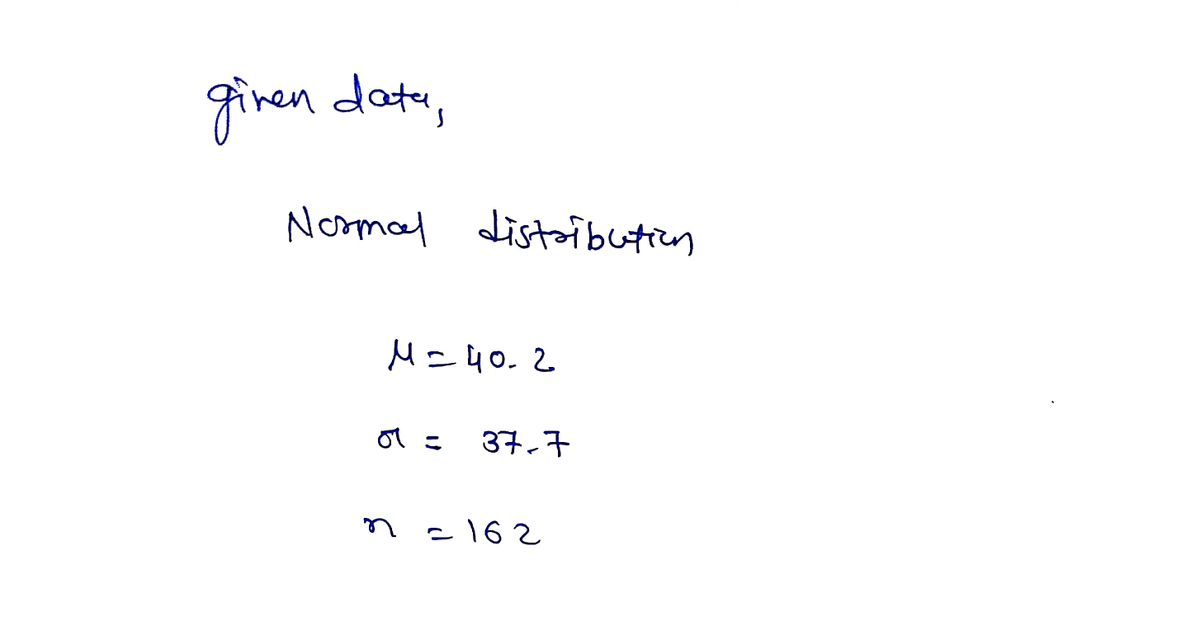 given data,
Normal distribution
μ = 40.2
σ = 37.7
n = 162